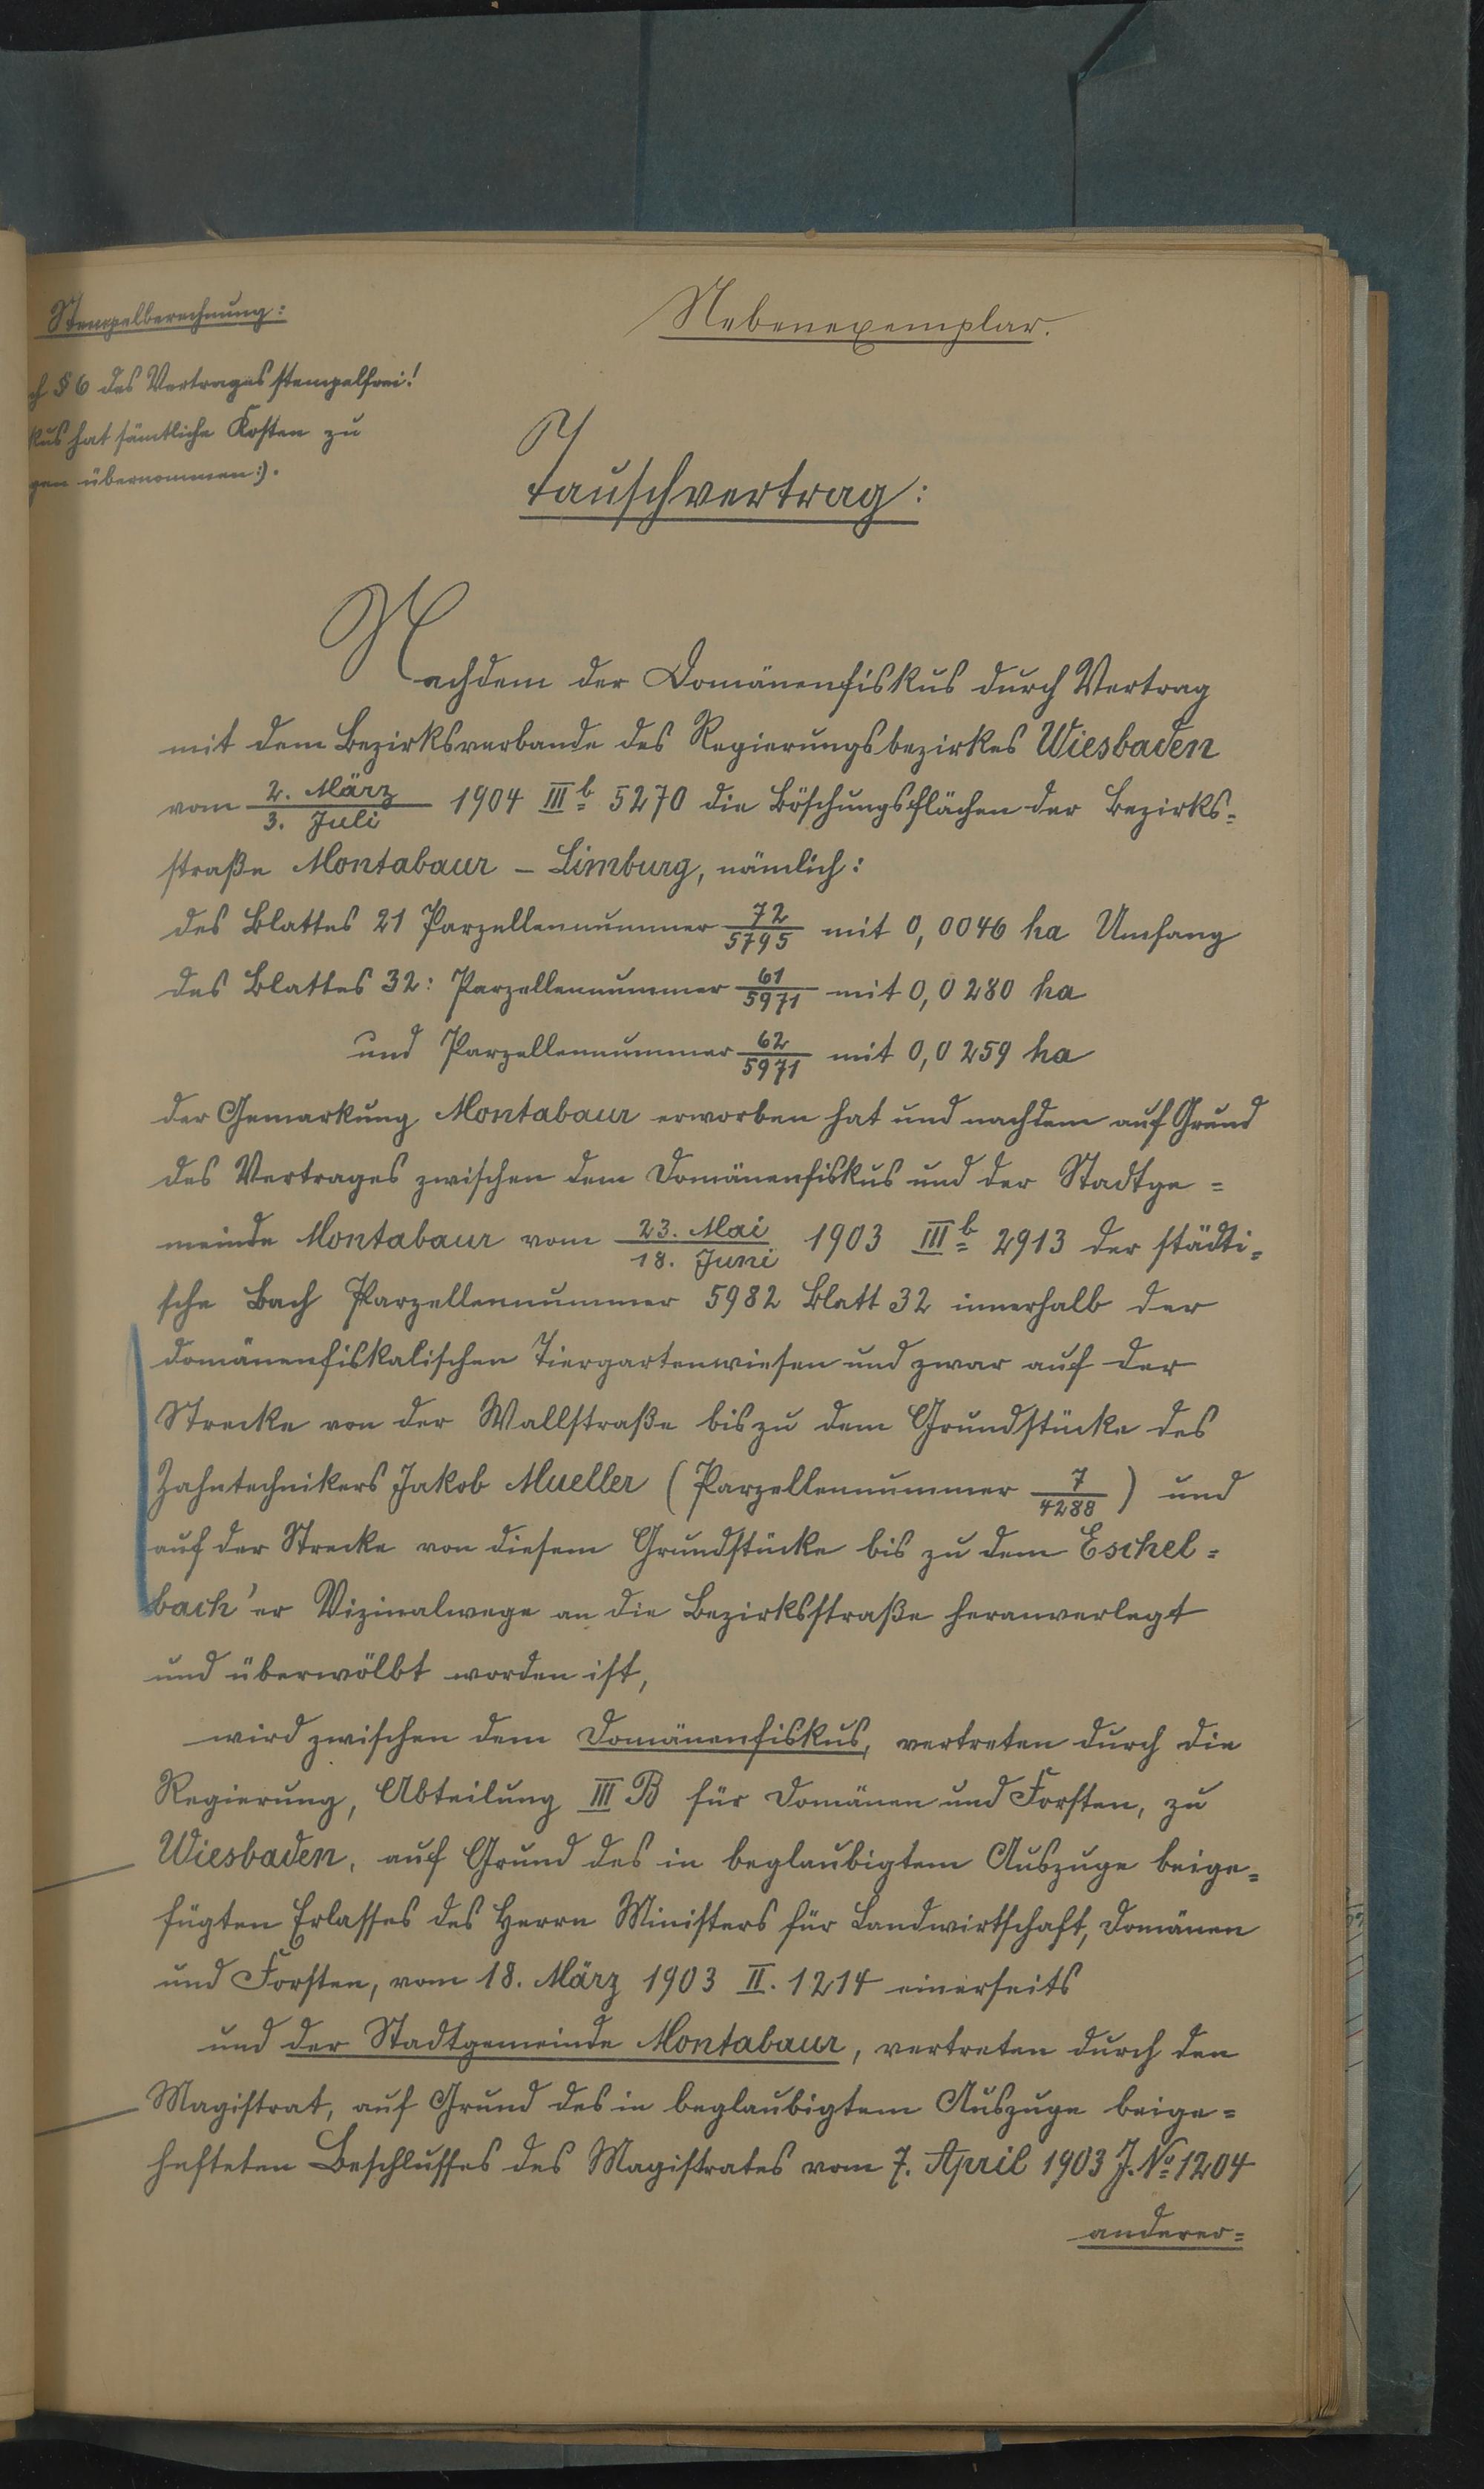 Stempelberechnung:
ch § 6 des Vertrages stempelfrei!
kus hat sämtliche Kosten zu
gen übernommen:).
Nebenexemplar.
Tauschvertrag:
Nachdem der Domänenfiskus durch Vertrag
mit dem Bezirksverbande des Regierungsbezirkes Wiesbaden
vom 2. März/3. Juli 1904 IIIb 5270 die Böschungsflächen der Bezirks=
straße Montabaur – Limburg, nämlich:
des Blattes 21 Parzellennummer 72/5795 mit 0,0046 ha Umfang
des Blattes 32: Parzellennummer 61/5971 mit 0,0280 ha
und Parzellennummer 62/5971 mit 0,0259 ha
der Gemarkung Montabaur erworben hat und nachdem auf Grund
des Vertrages zwischen dem Domänenfiskus und der Stadtge=
meinde Montabaur vom 23. Mai/18. Juni 1903 IIIb 2913 der städti=
sche Bach Parzellennummer 5982 Blatt 32 innerhalb der
domänenfiskalischen Tiergartenwiesen und zwar auf der
Strecke von der Wallstraße bis zu dem Grundstücke des
Zahntechnikers Jakob Mueller (Parzellennummer 7/4288) und
auf der Strecke von diesem Grundstücke bis zu dem Eschel=
bach'er Vizinalwege an die Bezirksstraße heranverlegt
und überwölbt worden ist,
wird zwischen dem Domänenfiskus, vertreten durch die
Regierung, Abteilung III B für Domänen und Forsten, zu
Wiesbaden, auf Grund des in beglaubigtem Auszuge beige=
fügten Erlasses des Herrn Ministers für Landwirtschaft, Domänen
und Forsten, vom 18. März 1903 II. 1214 einerseits
und der Stadtgemeinde Montabaur, vertreten durch den
Magistrat, auf Grund des in beglaubigtem Auszuge beige=
hefteten Beschlusses des Magistrates vom 7. April 1903 J. No 1204
anderer=